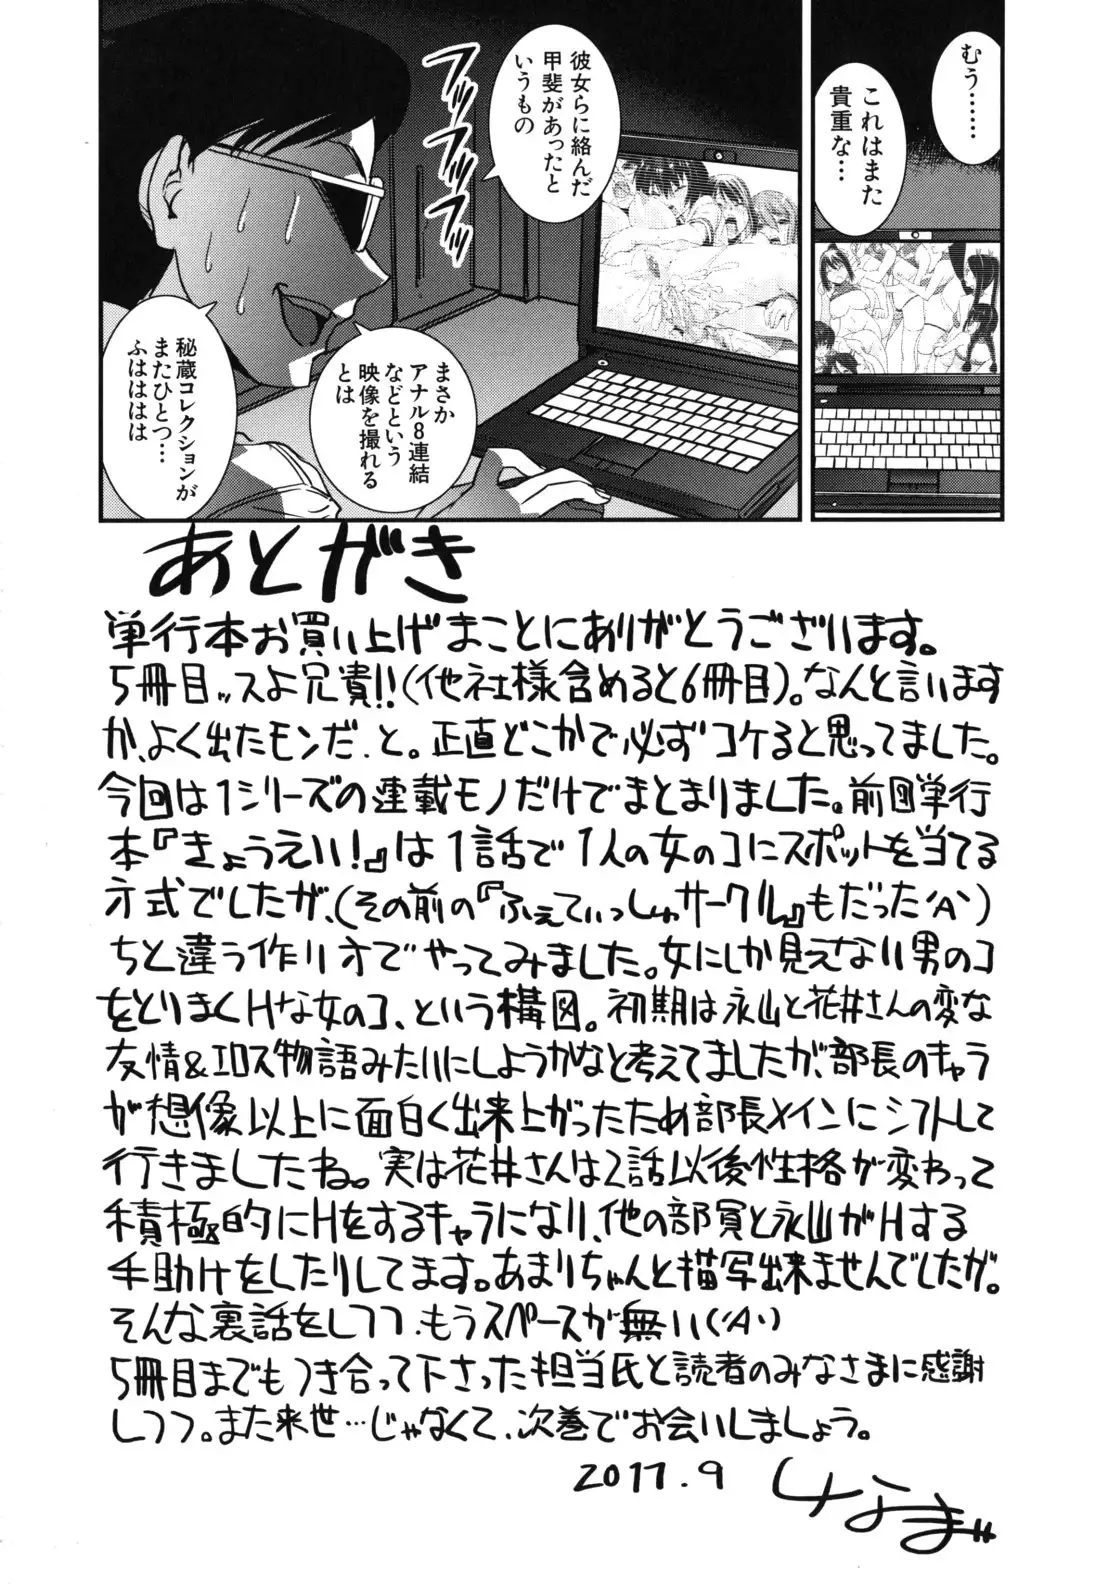 むう……
これはまた
貴重な…
彼女らに絡んだ
甲斐があったと
いうもの
フッフッフッ
まさか
アナル8連結
などという
映像を撮れる
とは
秘蔵コレクションが
またひとつ…
ふはははは
あとがき
単行本お買い上げまことにありがとうございます。
5冊目ッスよ兄貴!!(他社様含めると6冊目)。なんと言います
か、よく出たモンだ、と。正直どこかで必ずコケると思ってました。
今回は1シリーズの連載モノだけでまとまりました。前回単行
本『きょうえい!』は1話で1人の女のコにスポットを当てる
方式でしたが、(その前の『ふぇてぃっしゅサークル』もだった'A`)
ちと違う作り方でやってみました。女にしか見えない男のコ
をとりまくHな女のコ、という構図。初期は永山と花井さんの変な
友情&エロス物語みたいにしようかなと考えてましたが、部長のキャラ
が想像以上に面白く出来上がったため部長メインにシフトして
行きましたね。実は花井さんは2話以後性格が変わって
積極的にHをするキャラになり、他の部員と永山がHする
手助けをしたりしてます。あまりちゃんと描写出来ませんでしたが。
そんな裏話をしつつ、もうスペースが無い('A`)
5冊目までもつき合って下さった担当氏と読者のみなさまに感謝
しつつ。また来世…じゃなくて、次巻でお会いしましょう。
2017.9